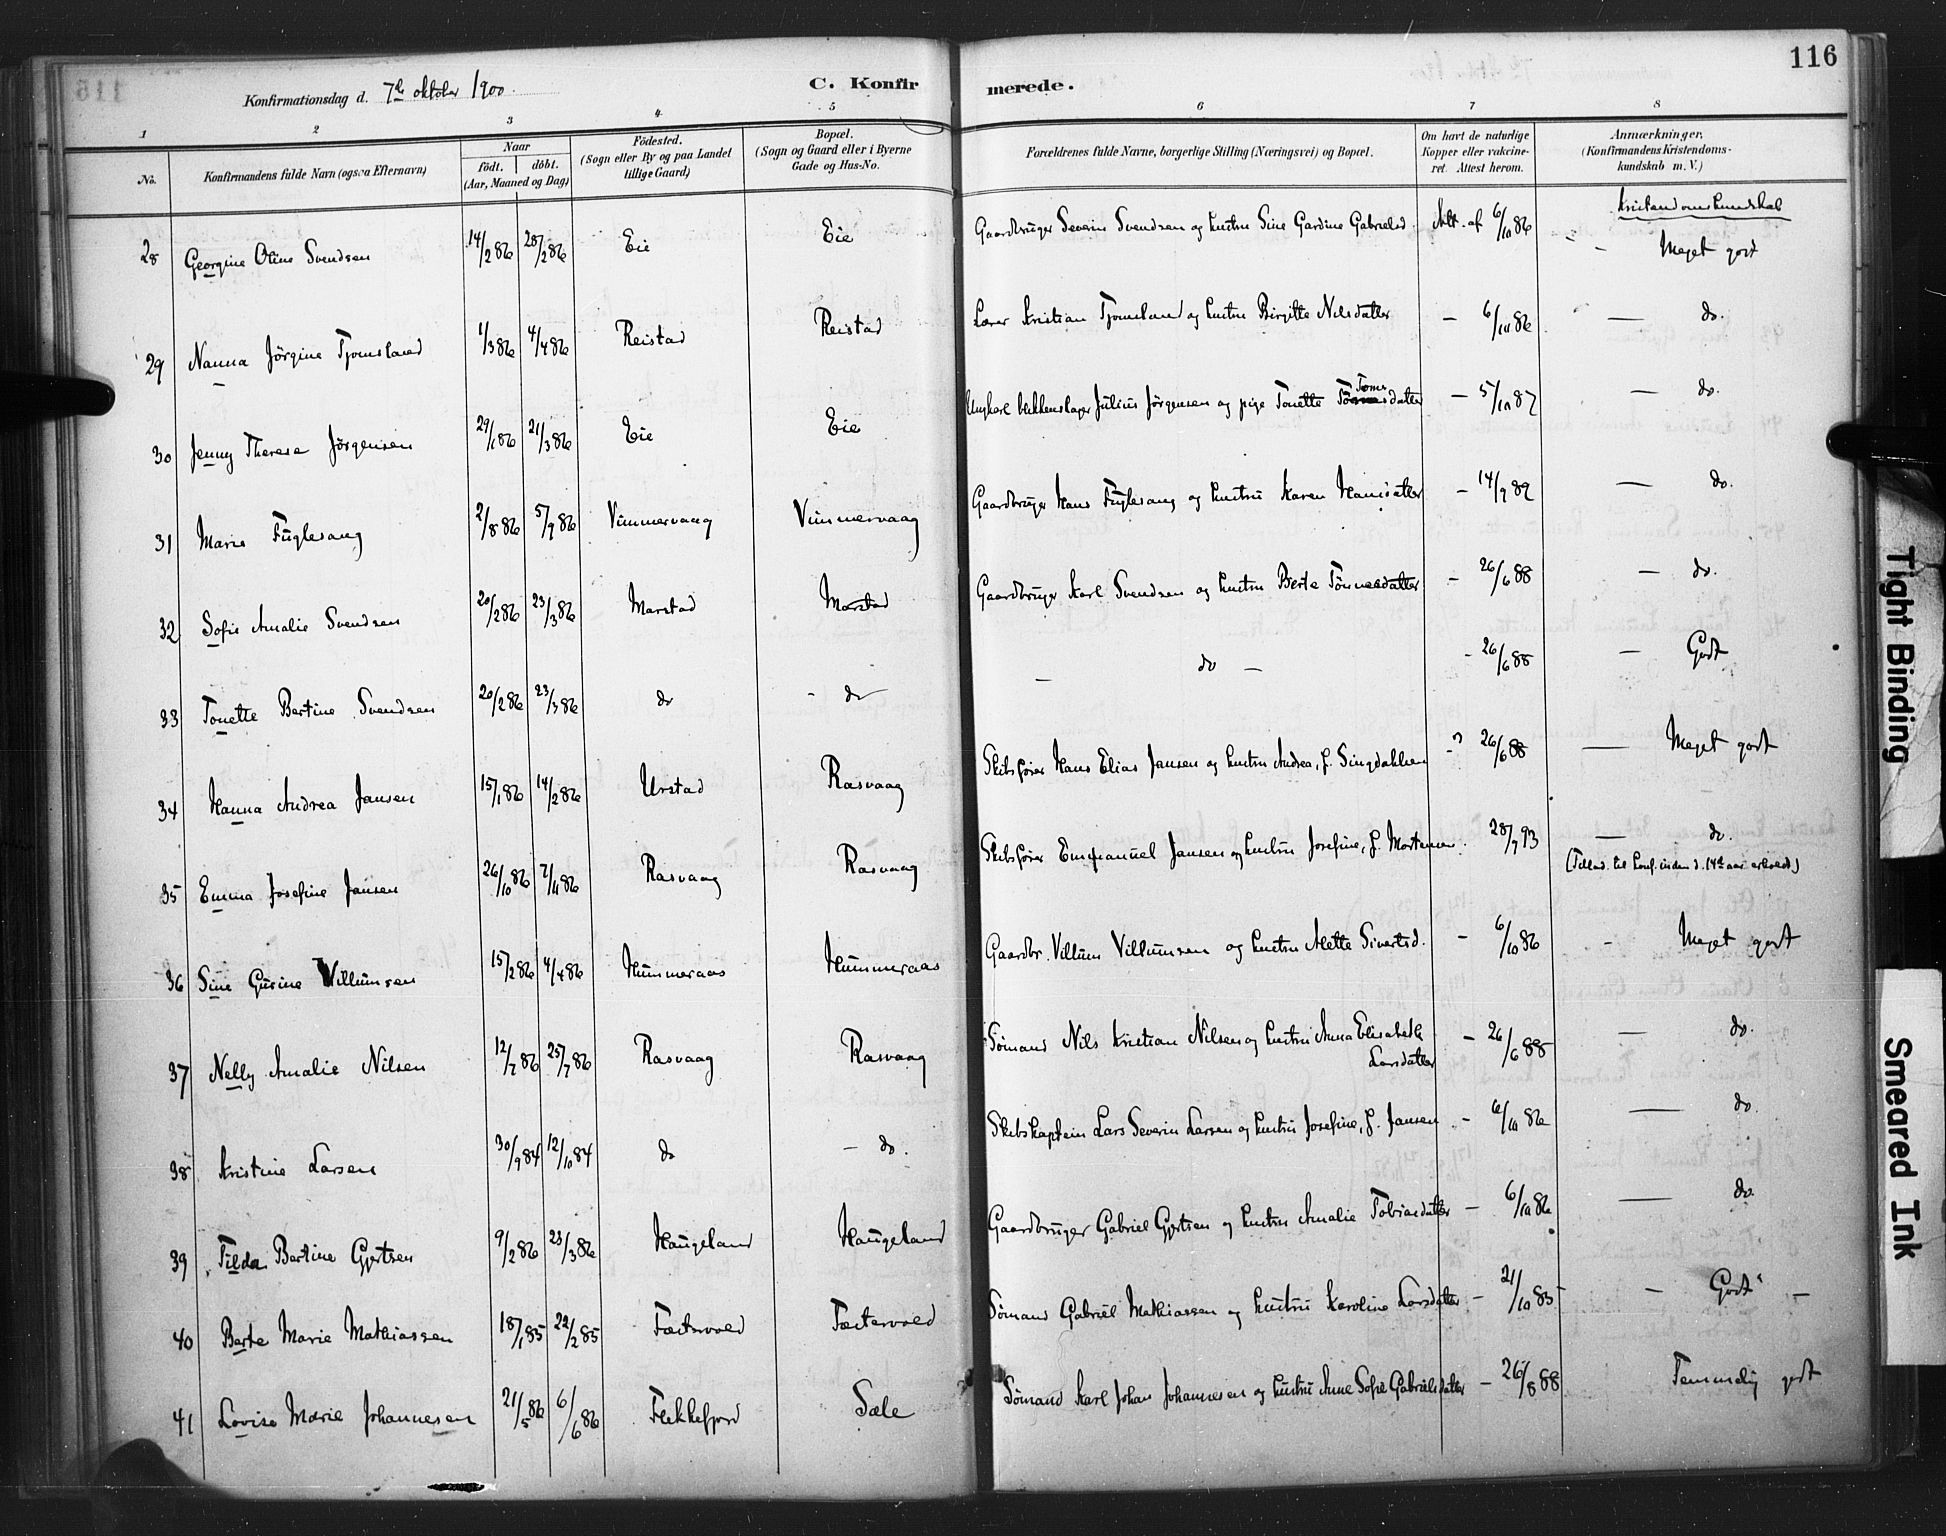 116
Konfirmationsdag d. 7de oktober 1900.
C. Konfirmerede.
1 2 3 4 5 6 7 8
No. Konfirmandens fulde Navn (ogsaa Efternavn)
Naar
födt. döbt.
(Aar, Maaned og Dag)
Födested.
(Sogn eller By og paa Landet
tillige Gaard)
Bopæl.
(Sogn og Gaard eller i Byerne
Gade og Hus-No.
Forældrenes fulde Navne, borgerlige Stilling (Næringsvei) og Bopæl.
Om havt de naturlige
Kopper eller vakcine-
ret. Attest herom.
Anmærkninger,
(Konfirmandens Kristendoms-
kundskab m. V.)
Kristendomskundskab
28 Georgine Oline Svendsen 14/2 86 28/2 86 Eie Eie Gaardbruger Severin Svendsen og hustru Sine Gardine Gabrielsd. Att. af 6/10 86 " - Meget godt
29 Nanna Jörgine Tjomsland 1/3 86 4/4 86 Reistad Reistad Lærer Kristian Tjomsland og hustru Birgitte Nilsdatter — 6/10 86 — do.
30 Jenny Therese Jörgensen 29/1 86 21/3 86 Eie Eie Ungkarl blikkenslager Julius Jörgensen og pige Tonette Toms datter — 5/10 87 — do.
31 Marie Fuglesang 2/8 86 5/9 86 Vummervaag Vummervaag Gaardbruger Hans Fuglesang og hustru Karen Hansdatter — 14/9 89 — do.
32 Sofie Amalie Svendsen 20/2 86 23/3 86 Marstad Marstad Gaardbruger Karl Svendsen og hustru Berte Tönnesdatter — 26/6 88 — do.
33 Tonette Bertine Svendsen 20/2 86 23/3 86 do - do — do — - 26/6 88 — Godt
34 Hanna Andrea Jansen 15/1 86 14/2 86 Urstad Rasvaag Skibsförer Hans Elias Jansen og hustru Andrea, f. Singdahlsen -? 26/6 88 — Meget godt
35 Emma Josefine Jansen 26/10 86 7/11 86 Rasvaag Rasvaag Skibsförer Emmanuel Jansen og hustru Josefine, f. Mortensen. 28/7 93 — do.
(Tillad. til konf. inden d. 14de aar erholdt)
36 Sine Gurine Villumsen 15/2 86 4/4 86 Hummeraas Hummeraas Gaardbr. Villum Villumsen og hustru Alette Sivertsd. — 6/10 86 - Meget godt
37 Nelly Amalie Nilsen 12/7 86 25/7 86 Rasvaag Rasvaag Sömand Nils Kristian Nilsen og hustru Anna Elisabeth
Larsdatter — 26/6 88 — do.
38 Kristine Larsen 30/9 84 12/10 84 do — do. Skibskaptein Lars Severin Larsen og hustru Josefine, f. Jansen — 6/10 86 — do.
39 Tilda Bertine Gjertsen 9/2 86 23/3 86 Haugeland Haugeland Gaardbruger Gabriel Gjertsen og hustru Amalie Tobiasdatter — 6/10 86 — do.
40 Berte Marie Mathiassen 18/1 85 22/2 85 Sömand Gabriel Mathiassen og hustru Karoline Larsdatter — 21/10 85 — Godt —
41 Lovise Marie Johannesen 21/5 86 6/6 86 Flekkefjord Sæle Sömand Karl Johan Johannesen og hustru Anne Sofie Gabrielsdatter — 26/8 88 Temmelig godt
Tight Binding
Smeared Ink